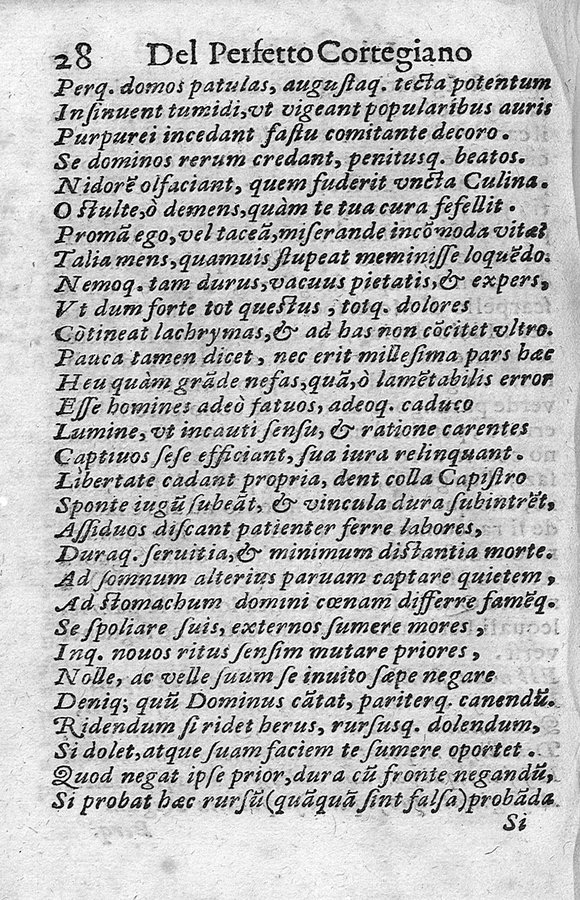 28 Del Perfetto Cortegiano
Perq. domos patulas, augustaq. tecta potentum
Insinuent tumidi, vt vigeant popularibus auris
Purpurei incedant fastu comitante decoro.
Se dominos rerum credant, penitusq. beatos.
Nidorẽ olfaciant, quem fuderit vncta Culina.
O stulte, ò demens, quàm te tua cura fefellit.
Promã ego, vel taceã, miserande incõmoda vitæ!
Talia mens, quamuis stupeat meminisse loquẽdo.
Nemoq. tam durus, vacuus pietatis, & expers,
Vt dum forte tot questus, totq. dolores
Cõtineat lachrymas, & ad has non cõcitet vltro.
Pauca tamen dicet, nec erit millesima pars hæc
Heu quàm grãde nefas, quã, ò lamẽtabilis error
Esse homines adeò fatuos, adeoq. caduco
Lumine, vt incauti sensu, & ratione carentes
Captiuos sese efficiant, sua iura relinquant.
Libertate cadant propria, dent colla Capistro
Sponte iugũ subeãt, & vincula dura subintrẽt,
Assiduos discant patienter ferre labores,
Duraq. seruitia, & minimum distantia morte.
Ad somnum alterius paruam captare quietem,
Ad stomachum domini cœnam differre famẽq.
Se spoliare suis, externos sumere mores,
Inq. nouos ritus sensim mutare priores,
Nolle, ac velle suum se inuito sæpe negare
Deniq; quũ Dominus cãtat, pariterq. canendũ.
Ridendum si ridet herus, rursusq. dolendum,
Si dolet, atque suam faciem te sumere oportet.
Quod negat ipse prior, dura cũ fronte negandũ,
Si probat hæc rursũ (quãquã sint falsa) probãda
Si